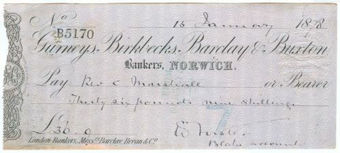 No
B5170
15 January 1878
Gurneys, Birkbecks, Barclay & Buxton
Bankers, NORWICH.
Pay Rev. C Marshall or Bearer
Thirty six pounds nine shillings
£36.9
London Bankers, Messrs. Barclay, Bevan & Co.